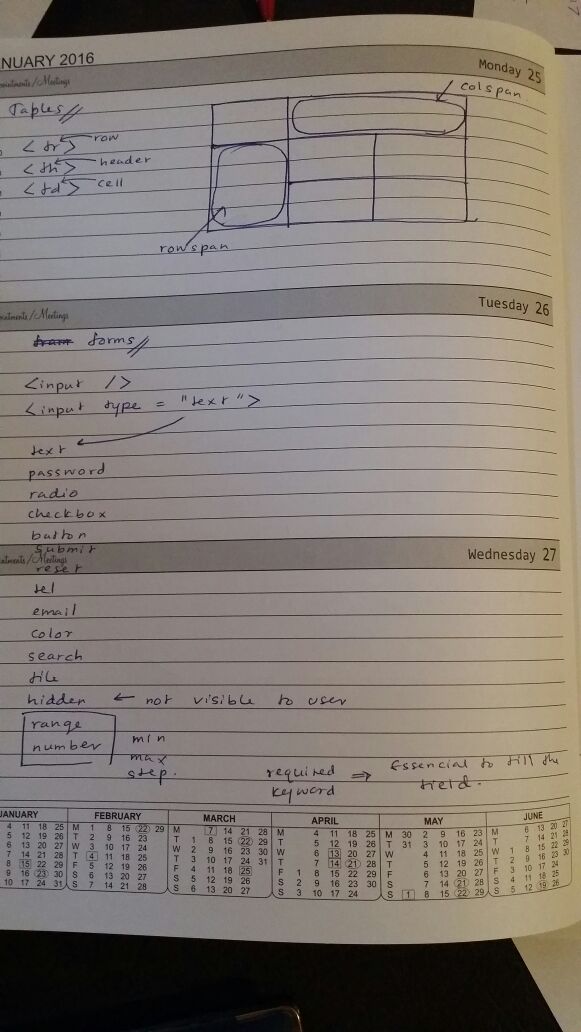 NUARY 2016
Monday 25
ointments/Meetings
Tables
colspan
<tr> row
<th> header
<td> cell
rowspan
Tuesday 26
ointments/Meetings
forms
<input />
<input type = "text">
text
password
radio
checkbox
button
submit
Wednesday 27
ntments/Meetings
reset
tel
email
color
search
file
hidden ← not visible to user
range
number
min
max
step.
required keyword ⇒ Essencial to fill the field.
ANUARY
4 11 18 25
5 12 19 26
6 13 20 27
7 14 21 28
8 15 22 29
9 16 23 30
10 17 24 31
FEBRUARY
M 1 8 15 22 29
T 2 9 16 23
W 3 10 17 24
T 4 11 18 25
F 5 12 19 26
S 6 13 20 27
S 7 14 21 28
MARCH
M 7 14 21 28
T 1 8 15 22 29
W 2 9 16 23 30
T 3 10 17 24 31
F 4 11 18 25
S 5 12 19 26
S 6 13 20 27
APRIL
M 4 11 18 25
T 5 12 19 26
W 6 13 20 27
T 7 14 21 28
F 1 8 15 22 29
S 2 9 16 23 30
S 3 10 17 24
MAY
M 30 2 9 16 23
T 31 3 10 17 24
W 4 11 18 25
T 5 12 19 26
F 6 13 20 27
S 7 14 21 28
S 1 8 15 22 29
JUNE
M 6 13 20 27
T 7 14 21 28
W 1 8 15 22 29
T 2 9 16 23 30
F 3 10 17 24
S 4 11 18 25
S 5 12 19 26